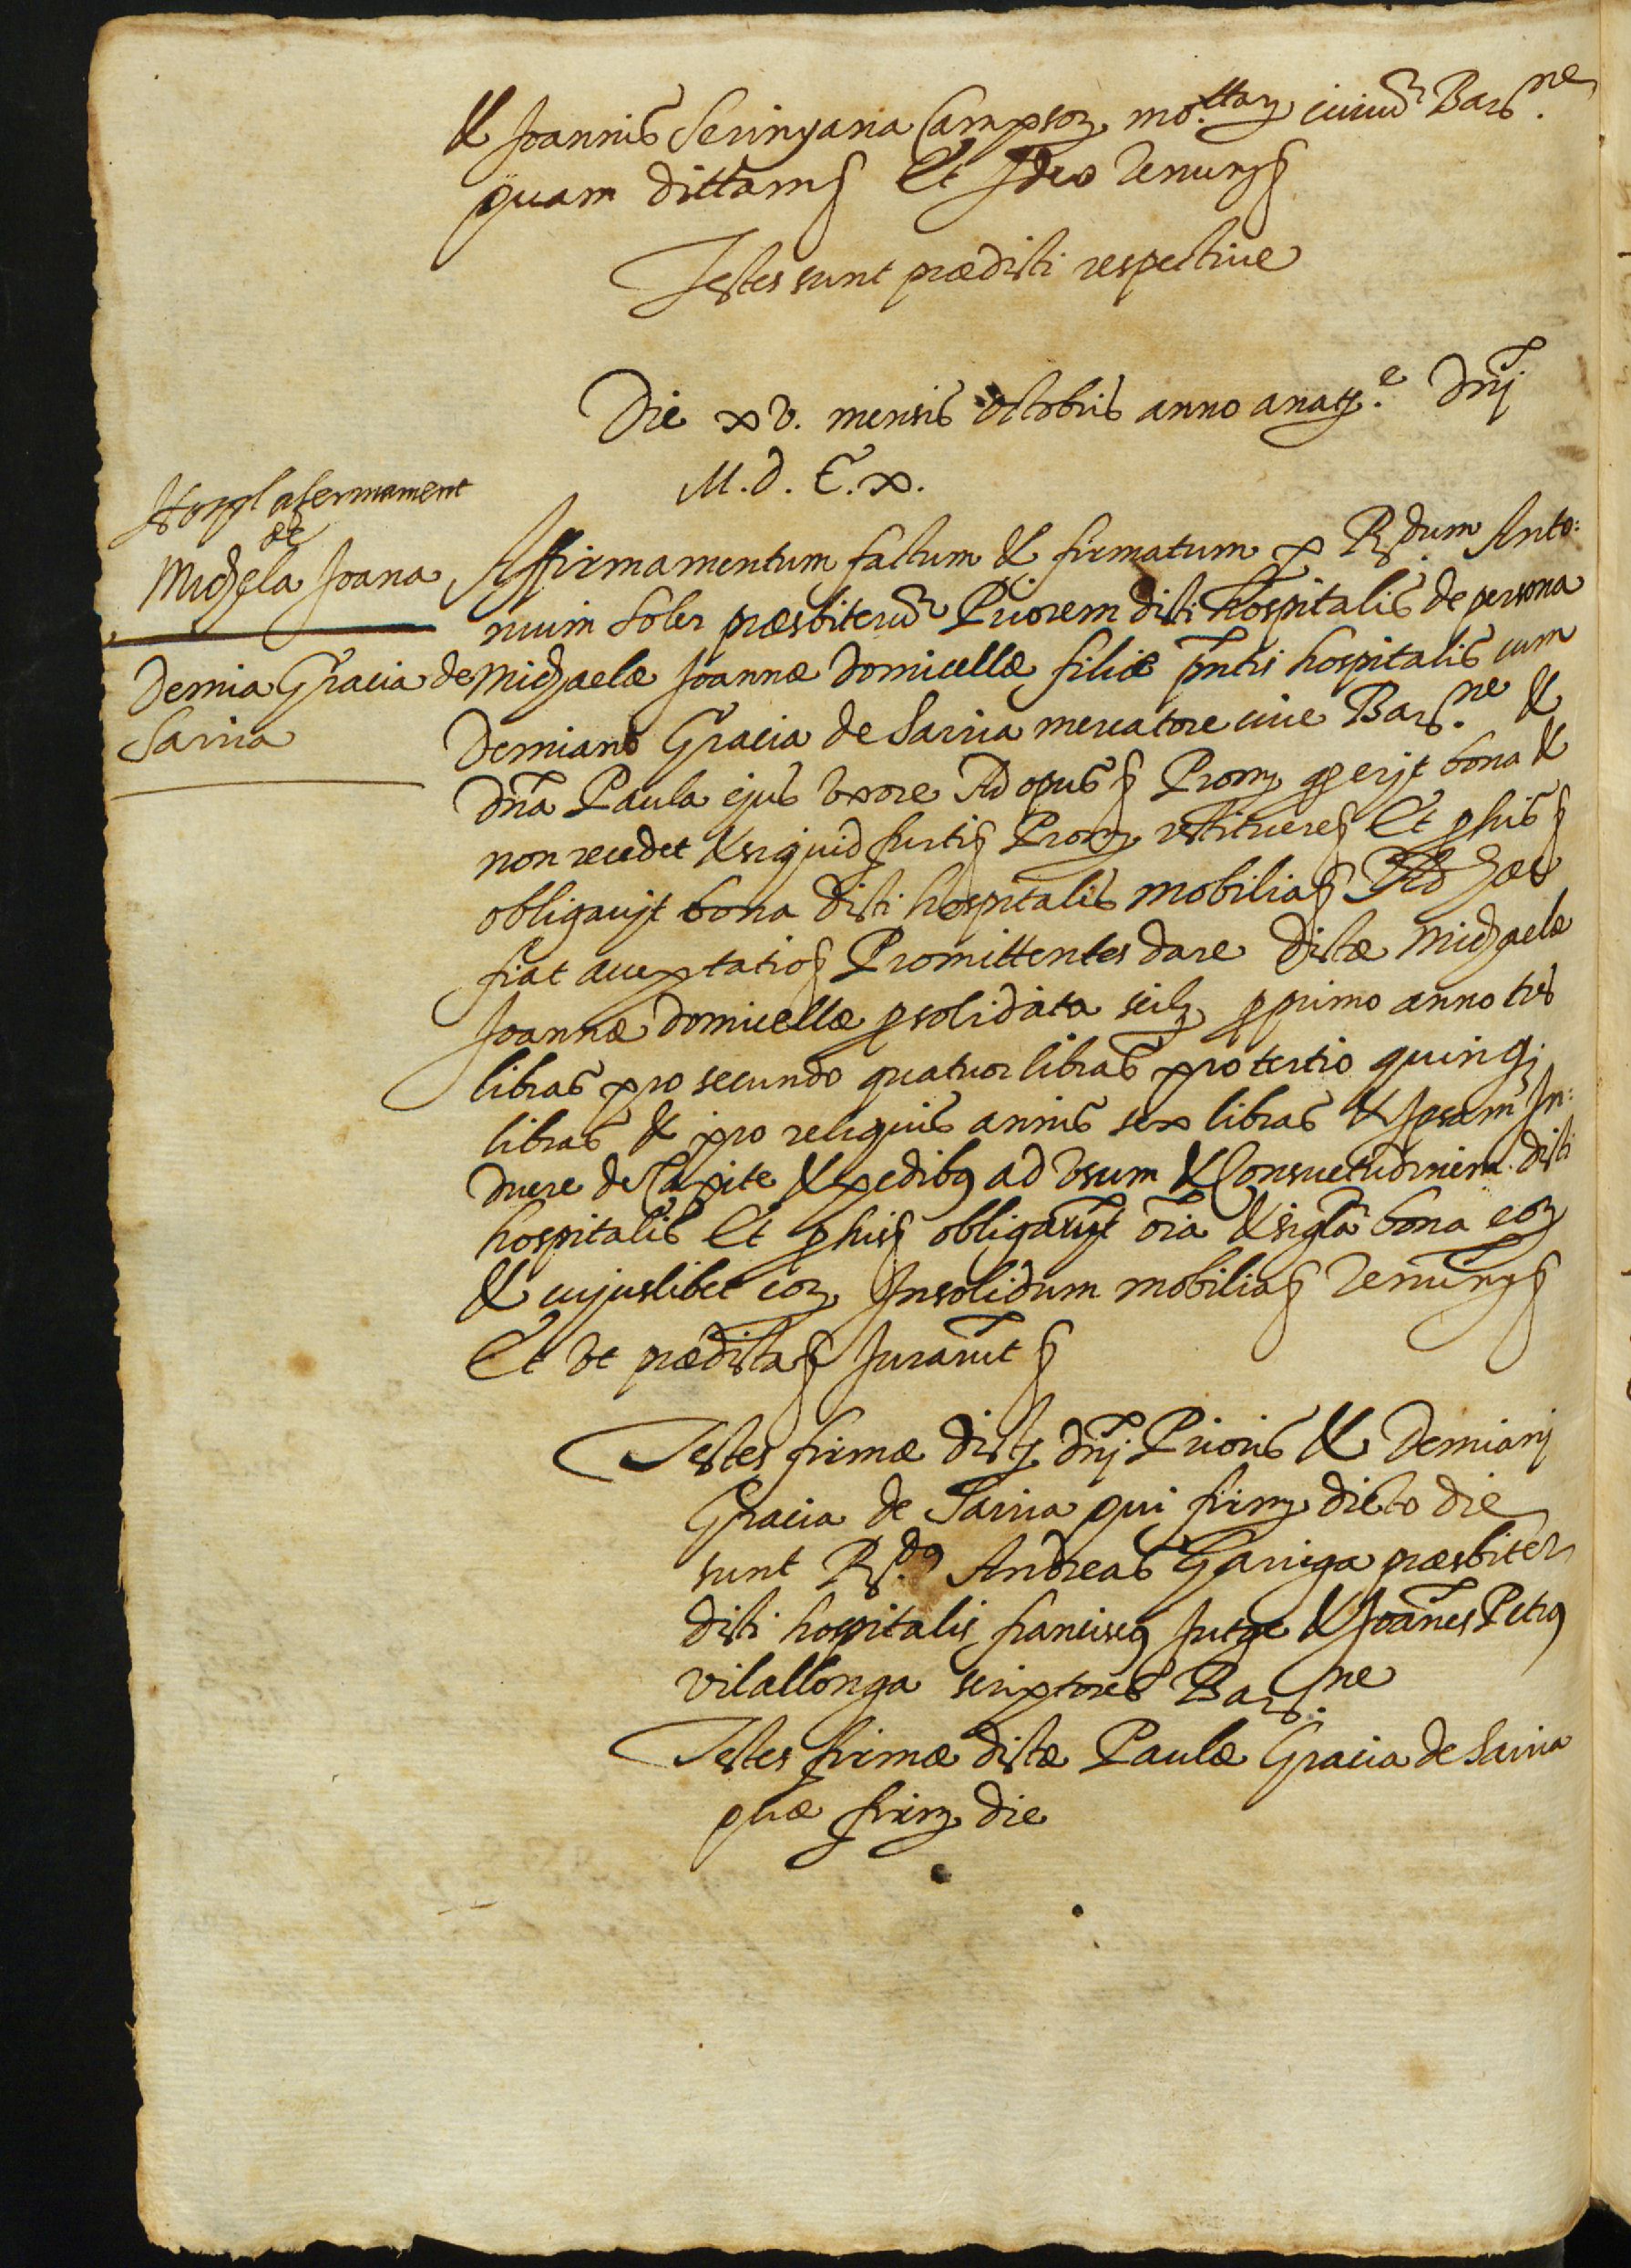 & Joannis Seringana Campsor. mo.ttar. civiũ Barᶜ.ne
quam dictam§ Et Ideo Renun§
Testes sunt prædicti respective
Die xv. mensis octobris anno a naty.e Dnj̃
M.d.C.x.
Hospl afermament
de
Michela Joana
Demia Gracia de
Sarria
Affirmamentum factum & firmatum p Rdum Anto:
nium Soler præsbiterũ Priorem dicti hospitalis de persona
Michaelæ Joannæ Domicellæ filiæ pñtis hospitalis cum
Demiano Gracia de Sarria mercatore cive Barᶜ.ne &
Dña Paula ejus vxore Ad opus§ Prom. q erit bona &
non recedet & siquid furti§ Prom. restituere§ Et p his§
obligavit bona dicti hospitalis mobilia§ Ad hæc
fiat acceptatio§ Promittentes dare dictæ Michaelæ
Joannæ Domicellæ p solidata scilz p primo anno tres
libras pro secundo quatuor libras pro tertio quinq;
libras & pro reliquis annis sex libras & Ipsam In:
duere de Capite & pedibꝰ ad vsum & Consuetudinem dicti
hospitalis Et p his§ obligarũt oĩa & sigla bona eoꝝ
& cujuslibet eoꝝ Insolidum mobilia§ Renun§
Et vt prædicta§ Jurarũt§
Testes firmæ dictꝝ Dnj̃ Prioris & Demianj
Gracia de Sarria qui firm. dicto die
sunt R.dꝰ Andreas Garriga præsbiter
dicti hospitalis franciscꝰ Jutge & Joañes Petrꝰ
vilallonga scriptores Barᶜ.ne
Testes firmæ dictæ Paulæ Gracia de Sarria
quæ firm. die